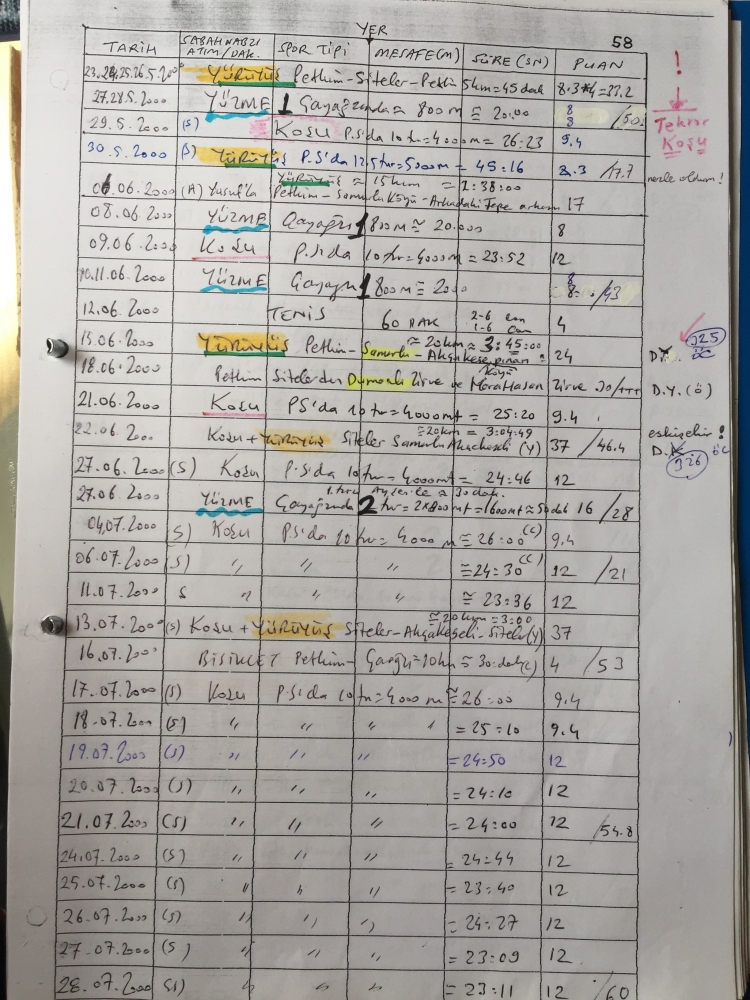 YER
58
TARİH SABAH NABZI ATIM/DAK. SPOR TİPİ MESAFE(M) SÜRE (SN) PUAN
YÜRÜYÜŞ Petkim-Siteler-Petkim 5km=45 dak 8.3*4=33.2
27.28.5.2000 YÜZME 1 800m ≅ 20.00 8 8 /50
29.5.2000 (S) KOŞU P.S'da 10 tur=4000m = 26:23 9.4
30.5.2000 (S) YÜRÜYÜŞ P.S'da 12.5 tur=5000m = 45:16 8.3 /17.7
!
Tekrar
Koşu
nezle oldum!
06.06.2000 (A) Yusuf'la YÜRÜYÜŞ ≅ 15km = 2:38:00
Petkim-Samurlu Köyü-Arkadaki Tepe 17
08.06.2000 YÜZME 1 800m ≅ 20.00 8
09.06.2000 KOŞU P.S'da 10 tur=4000m = 23:52 12
10.11.06.2000 YÜZME 1 800m ≅ 20.00 8 8 /43
12.06.2000 TENİS 60 DAK 2-6 1-6 4
15.06.2000 YÜRÜYÜŞ Petkim-Samurlu-Akçakese ≅ 20km ≅ 3:45:00 24
Köyü
325
18.06.2000 Petkim Sitelerden Dumanlı Zirve ve Zirve 30
D.Y. (ö)
21.06.2000 KOŞU PS'da 10 tur=4000mt = 25:20 9.4
22.06.2000 Koşu + YÜRÜYÜŞ Siteler Samurlu (Y) ≅ 20km = 3:04:49 37 /46.4
eskişehir!
326
27.06.2000 (S) Koşu P.S'da 10 tur=4000mt = 24:46 12
27.06.2000 YÜZME 2 tur=2x800mt=1600mt ≅ 50dak 16 /28
1. tur ≅ 30 dak.
04.07.2000 (S) Koşu P.S'da 10 tur = 4000 m ≅ 26:00 (C) 9.4
06.07.2000 (S) " " " ≅ 24:30 (C) 12 /21
11.07.2000 S " " ≅ 23:36 12
13.07.2000 (S) Koşu + YÜRÜYÜŞ Siteler-Akçakeseli-Siteler(Y) ≅ 20km = 3:00 37
16.07.2000 BİSİKLET Petkim- 4 /53
17.07.2000 (S) Koşu P.S'da 10 tur=4000 m ≅ 26:00 9.4
18.07.2000 (S) " " " = 25:10 9.4
19.07.2000 (S) " " " = 24:50 12
20.07.2000 (S) " " " = 24:10 12
21.07.2000 (S) " " " = 24:00 12 /54.8
24.07.2000 (S) " " " = 24:44 12
25.07.2000 (S) " " " = 23:40 12
26.07.2000 (S) " " " = 24:27 12
27.07.2000 (S) " " " = 23:09 12
28.07.2000 (S) " " " = 23:11 12 /60